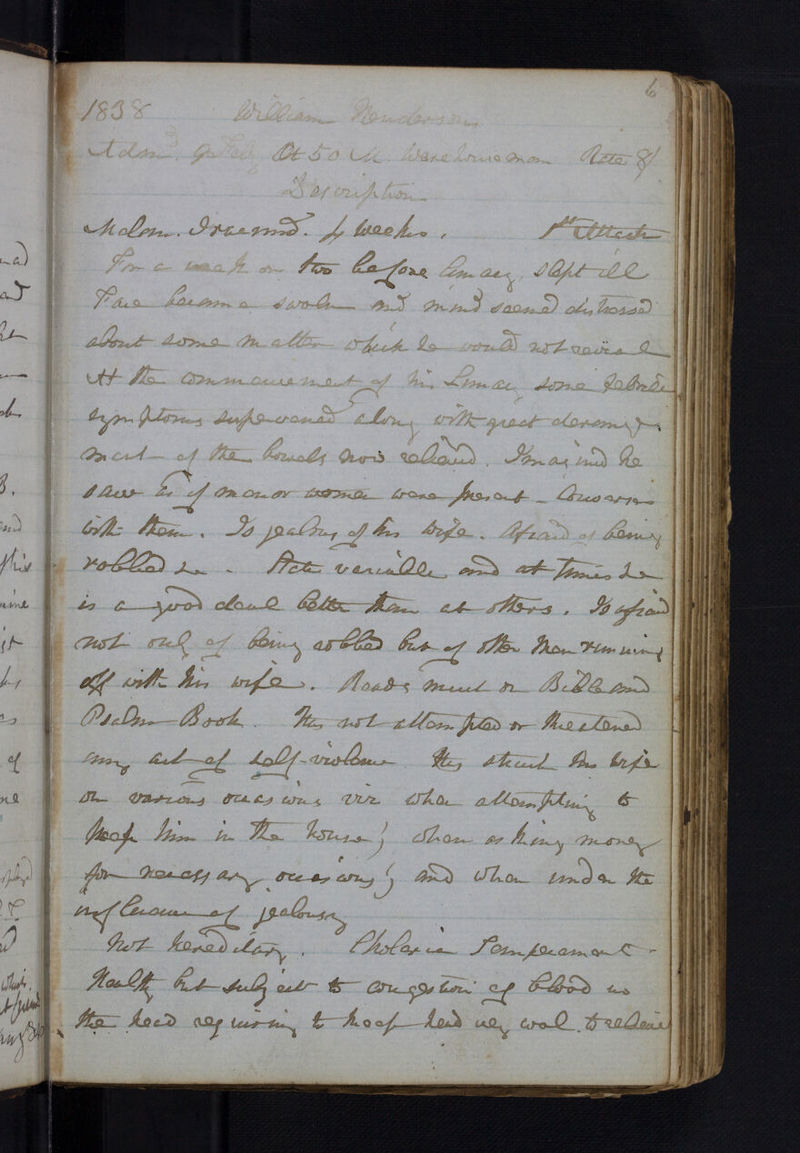 6
1838 William Henderson
Adm. 9 Feby Æt 50 M. Warehouseman Rate 8/
Description
Melan. Irac 4 weeks. 1st Attack
For a week or two before Lunacy, slept ill
Face became swoln and mind seemed distressed
about some matter which he would not reveal
At the commencement of his Lunacy some febrile
symptoms supervened along with great derange
ment of the bowels now relieved. Imagined he
saw as if men or women were present - Converses
with them. Is jealous of his wife. Afraid of being
robbed. State variable and at times he
is a good deal better than at others. Is afraid
not only of being robbed but of other men running
off with his wife. Reads much on Bible and
Psalm Book. Has not attempted or threatened
any act of self-violence. Has struck his wife
on various occasions viz when attempting to
keep him in the house; when asking money
for necessary occasions; and when under the
influence of jealousy
Not hereditary. Choleric Temperament.
Healthy but subject to congestion of blood in
the head requiring to keep head very cool to relieve
ad
B.
and
this
mine
it
his
as
of
me
which